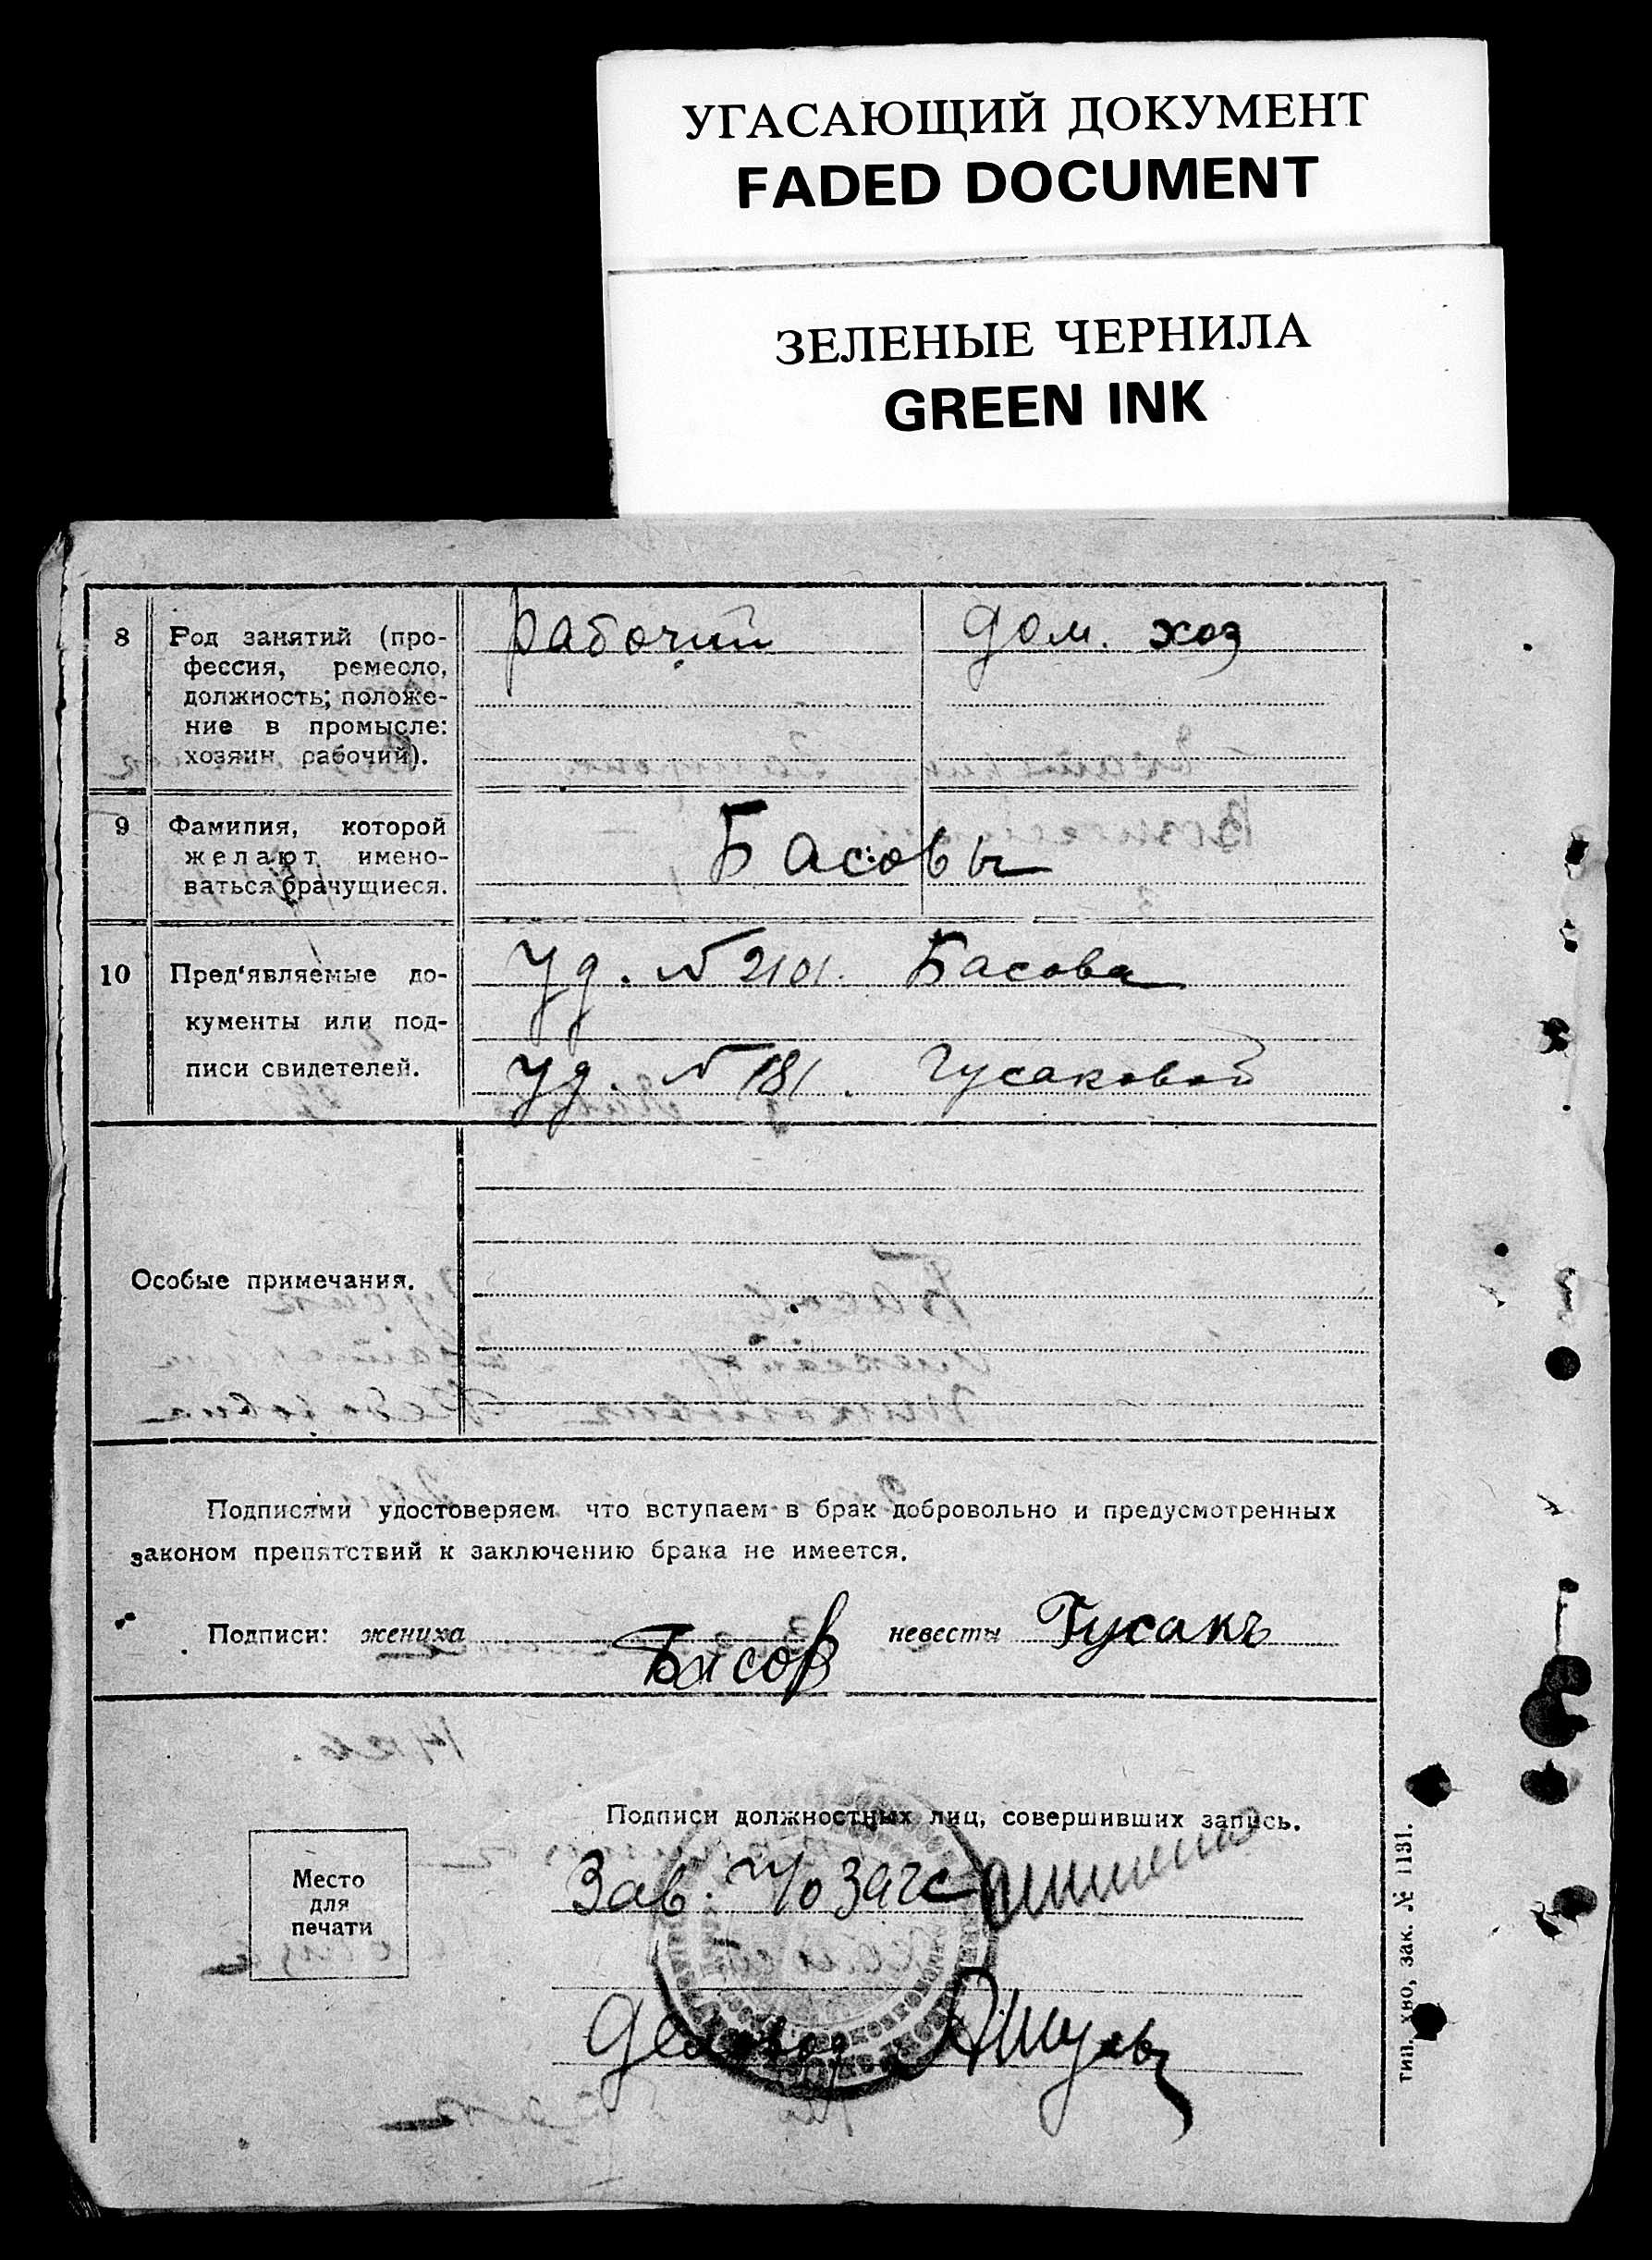 УГАСАЮЩИЙ ДОКУМЕНТ
FADED DOCUMENT
ЗЕЛЕНЫЕ ЧЕРНИЛА
GREEN INK
8 Род занятий (про-
фессия, ремесло,
должность; положе-
ние в промысле:
хозяин рабочий).
рабочий
дом. хоз
9 Фамилия, которой
желают имено-
ваться брачущиеся.
Басовы
10 Пред'являемые до-
кументы или под-
писи свидетелей.
Уд. № 2101. Басова
Уд. № 181. Гусаковой
Особые примечания.
Подписями удостоверяем что вступаем в брак добровольно и предусмотренных
законом препятствий к заключению брака не имеется.
Подписи: жениха Басов невесты Гусакъ
Подписи должностных лиц, совершивших запись.
Место
для
печати
Зав. г/о Загс
Деловод
тип. хво, зак. № 1131.